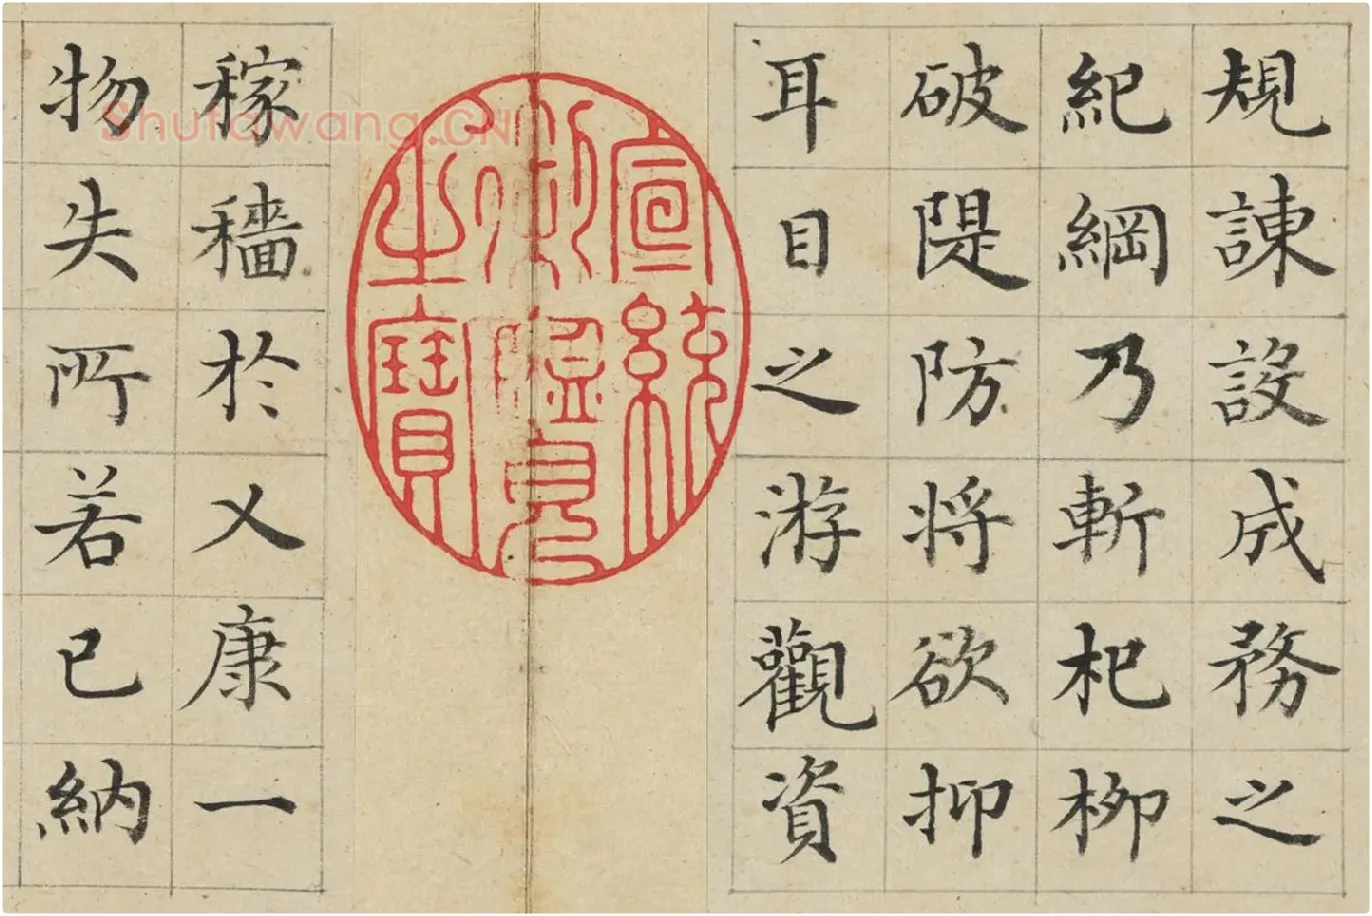 規諌設成務之
紀綱乃斬杞柳
破隄防将欲抑
耳目之游觀資
宣統
御覽
之寶
稼穡於乂康一
物失所若已納
Shufawang.CN